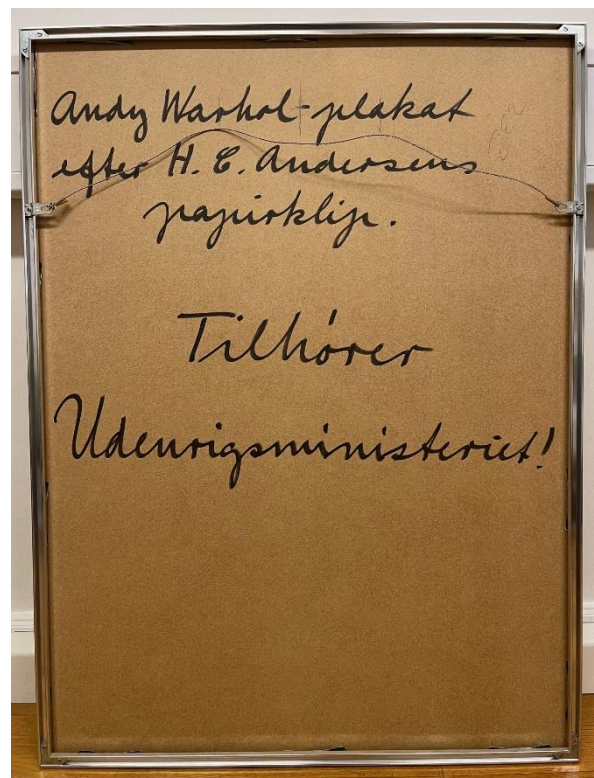 Andy Warhol-plakat
efter H. C. Andersens
papirklip.
Tilhører
Udenrigsministeriet!